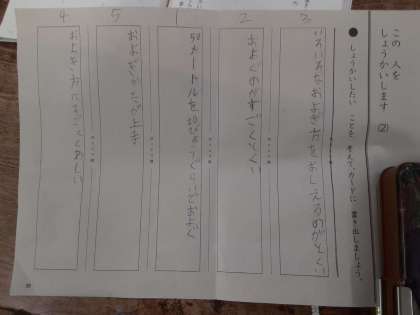 この 人を
しょうかいします (2)
● しょうかいしたい ことを 考えて、カードに 書き出しましょう。
3
いろいろなおよぎ方をおしえるのがとくい
2
およぐのがすごくとくい
1
50メートルを30びょうぐらいでおよぐ
5
およぎがとても上手
4
およぎ方にすごくくわしい